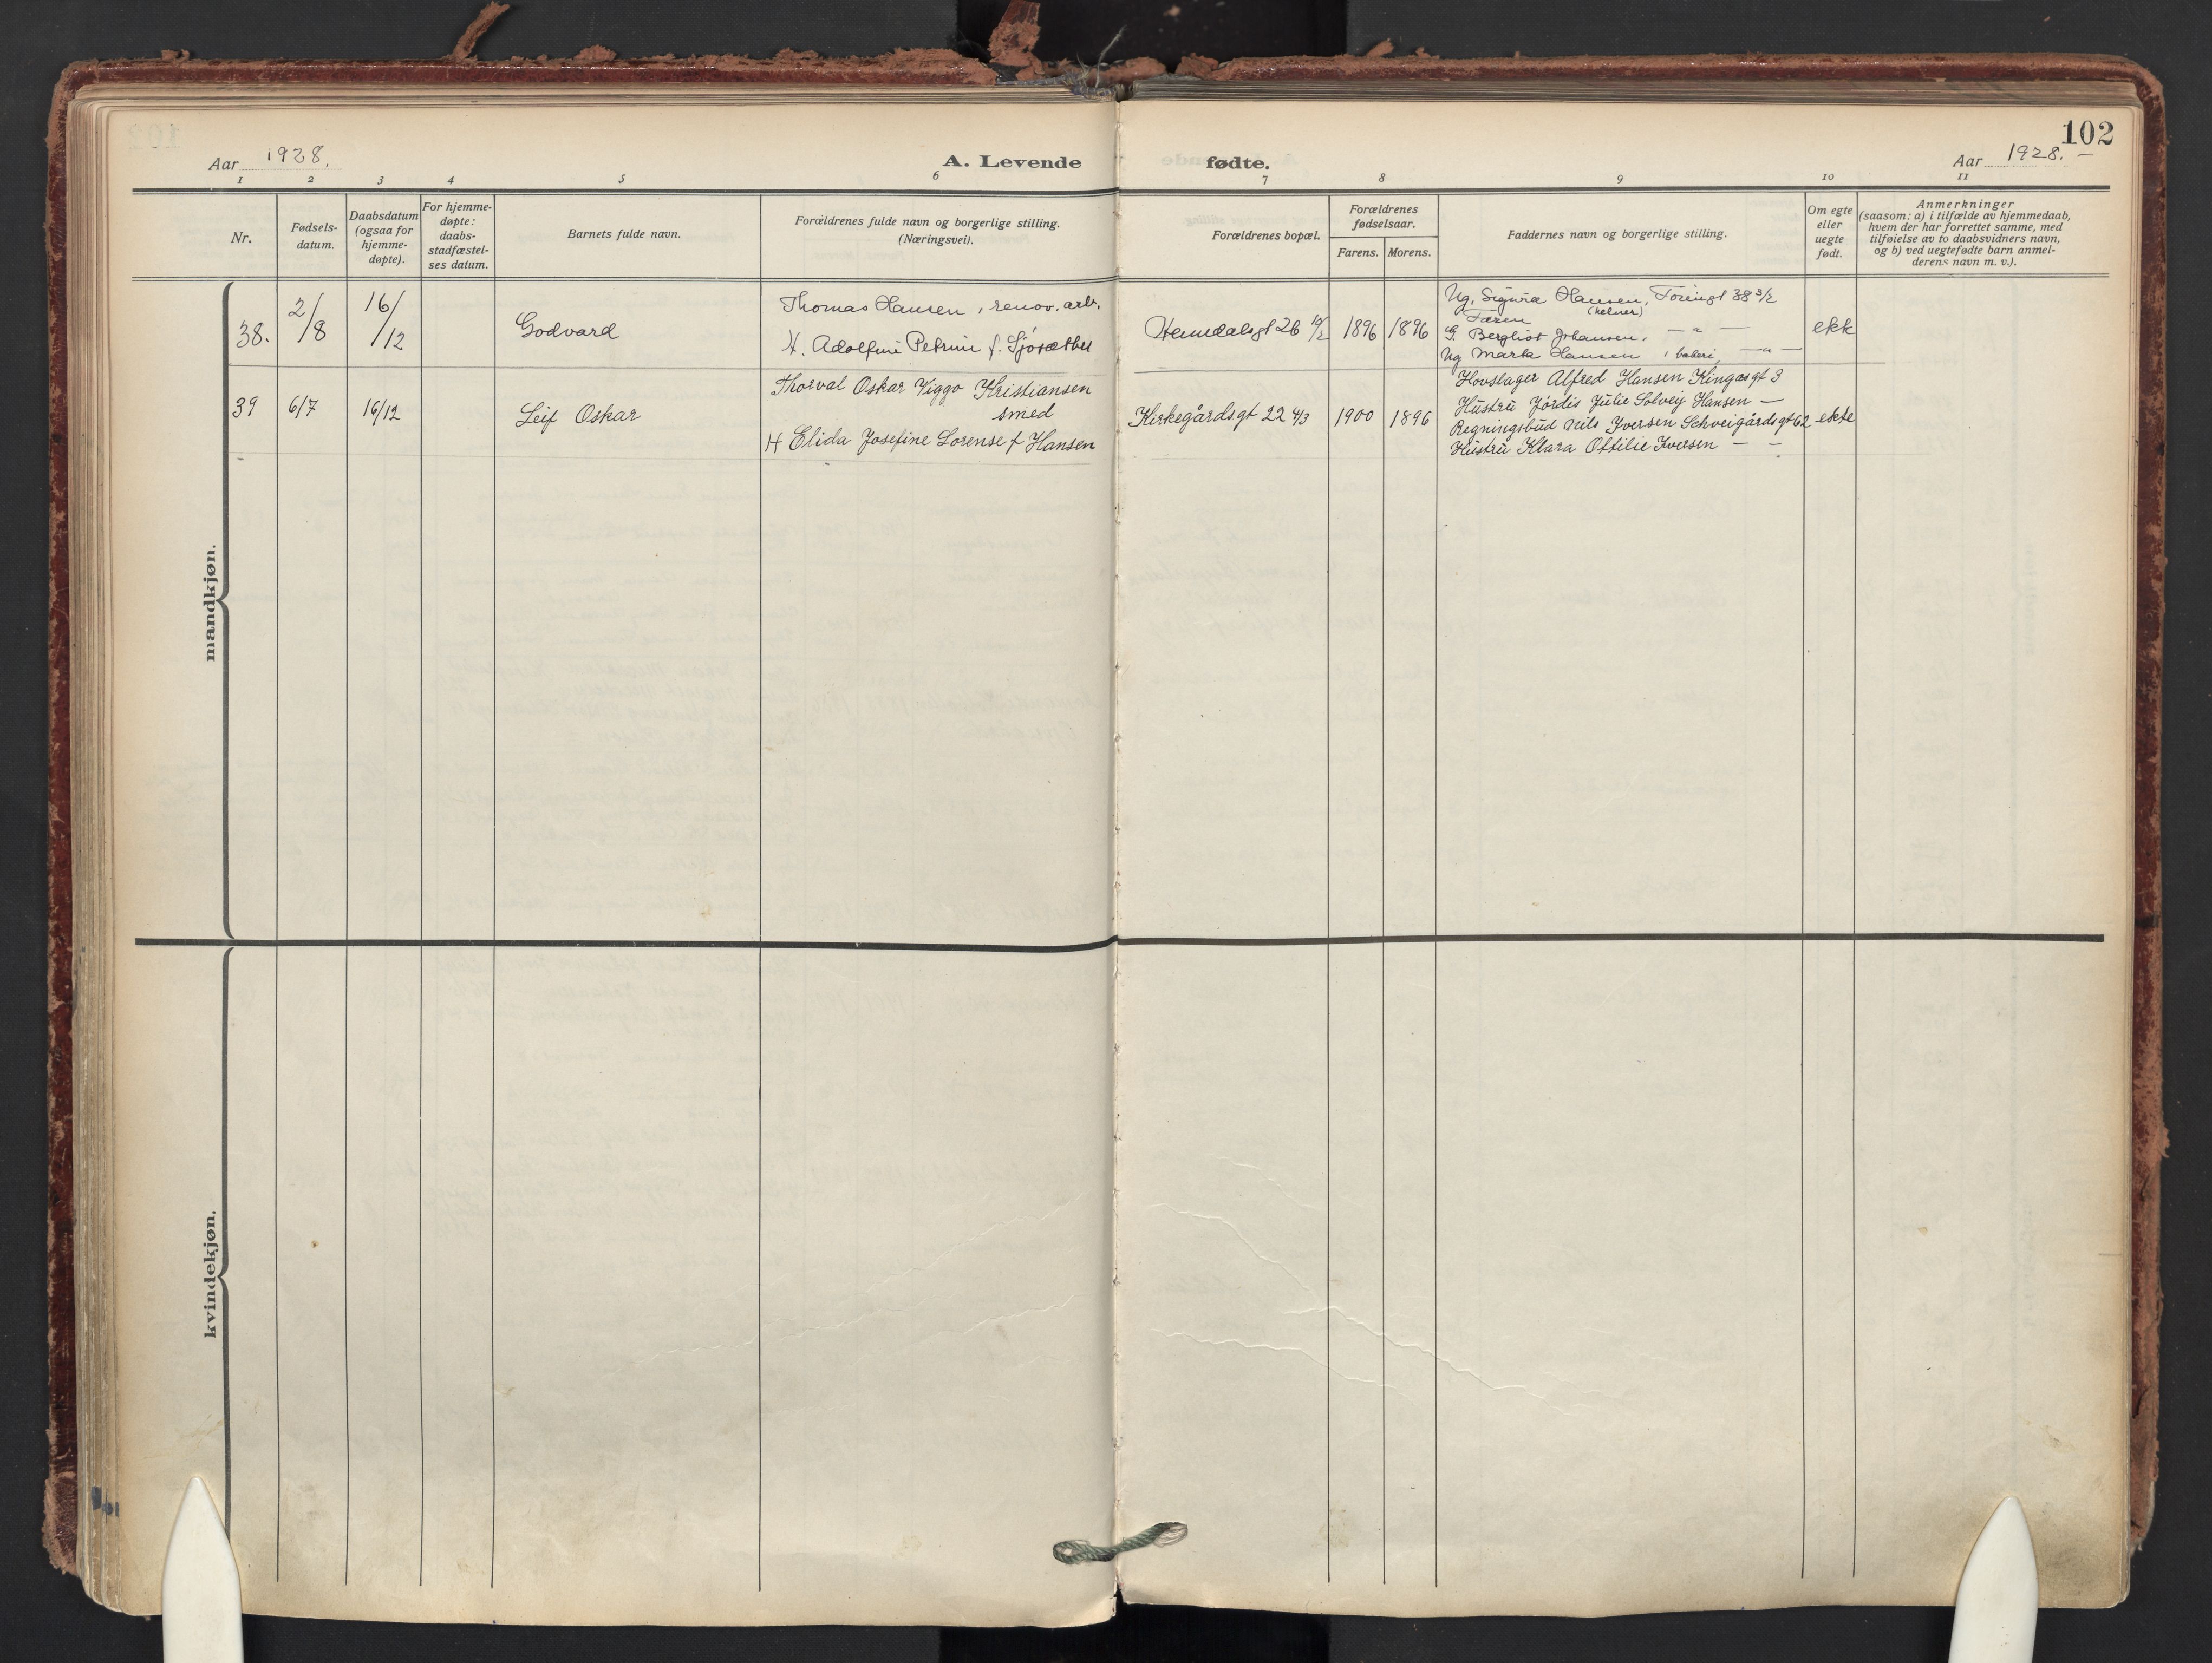 102
Aar 1928.
A. Levende fødte.
Aar 1928. —
1 2 3 4 5 6 7 8 9 10 11
Nr.
Fødsels-
datum.
Daabsdatum
(ogsaa for
hjemme-
døpte).
For hjemme-
døpte:
daabs-
stadfæstel-
ses datum.
Barnets fulde navn.
Forældrenes fulde navn og borgerlige stilling.
(Næringsvei).
Forældrenes bopæl.
Forældrenes
fødselsaar.
Farens. Morens.
Faddernes navn og borgerlige stilling.
Om egte
eller
uegte
født.
Anmerkninger
(saasom: a) i tilfælde av hjemmedaab,
hvem der har forrettet samme, med
tilføielse av to daabsvidners navn,
og b) ved uegtefødte barn anmel-
derens navn m. v.).
mandkjøn.
38. 2/8 16/12 Godvard
Thomas Hansen, renov. arb.
H. Adolfine Petrine f.
26 1896 1896
Ug. Sigurd Hansen, 38 3/2
Faren (kelner)
G. Bergliot Johansen, — " —
Ug Marta Hansen i bakeri, — " —
39 6/7 16/12 Leif Oskar
Thorval Oskar Viggo Kristiansen
smed
H Elida Josefine Lorense f Hansen
Kirkegårdsgt 22 4/3 1900 1896
Hovslager Alfred Hansen Kingosgt 3
Hustru Jórdis Julie Solveig Hansen —
Regningsbud Nils Iversen Schveigårdsgt 62
Hustru Klara Ottilie Iversen — —
ekte
kvindekjøn.